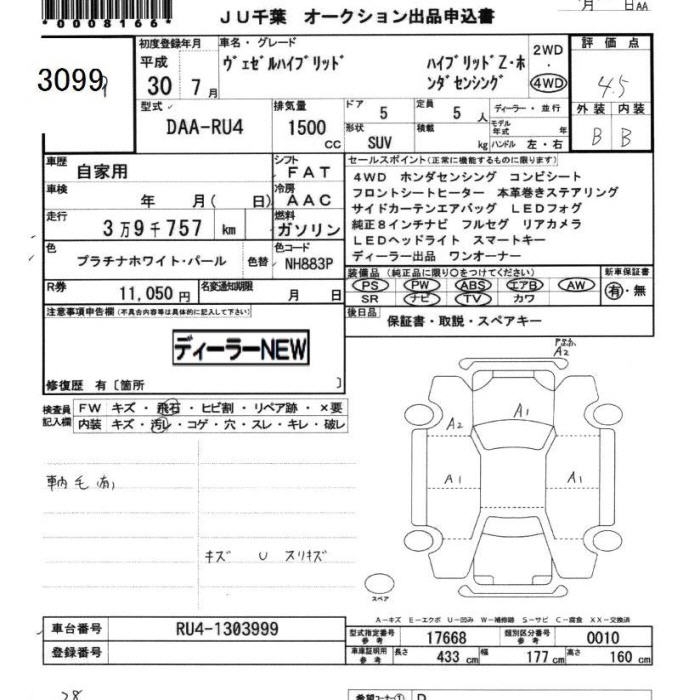 *0008166*
JU千葉 オークション出品申込書
月 日AA
3099
初度登録年月
平成
30年 7月
車名・グレード
ヴェゼルハイブリッド ハイブリッドZ・ホ
ンダセンシング
2WD
・
4WD
評価点
4.5
外装 内装
B B
型式
DAA-RU4
排気量
1500
CC
ドア 5
形状 SUV
定員 5 人
積載 kg
ディーラー・並行
モデル年式 年
ハンドル 左・右
車歴 自家用
シフト FAT
車検 年 月( 日)
冷房 AAC
走行 3万9千757 km
燃料 ガソリン
色 プラチナホワイト・パール 色替
色コード NH883P
R券 11,050円
名変通知期限 月 日
セールスポイント(正常に機能するものに限ります)
4WD ホンダセンシング コンビシート
フロントシートヒーター 本革巻きステアリング
サイドカーテンエアバッグ LEDフォグ
純正8インチナビ フルセグ リアカメラ
LEDヘッドライト スマートキー
ディーラー出品 ワンオーナー
装備品(純正品に限り○をつけてください)
PS PW ABS エアB AW
SR ナビ TV カワ
新車保証書
有・無
後日品 保証書・取説・スペアキー
注意事項申告欄(不具合内容等は具体的に記入して下さい)
ディーラーNEW
修復歴 有〔箇所 〕
検査員
記入欄
FW キズ・飛石・ヒビ割・リペア跡・×要
内装 キズ・汚レ・コゲ・穴・スレ・キレ・破レ
車内毛(有)
キズ U スリキズ
A2
A2
A1
A1
A1
スペア
A-キズ E-エクボ U-凹み W-補修跡 S-サビ C-腐食 XX-交換済
車台番号 RU4-1303999
登録番号
型式指定番号
参考
17668
類別区分番号
参考
0010
車庫証明用
参考
長さ 433cm
幅 177cm
高さ 160cm
28
希望コーナー①